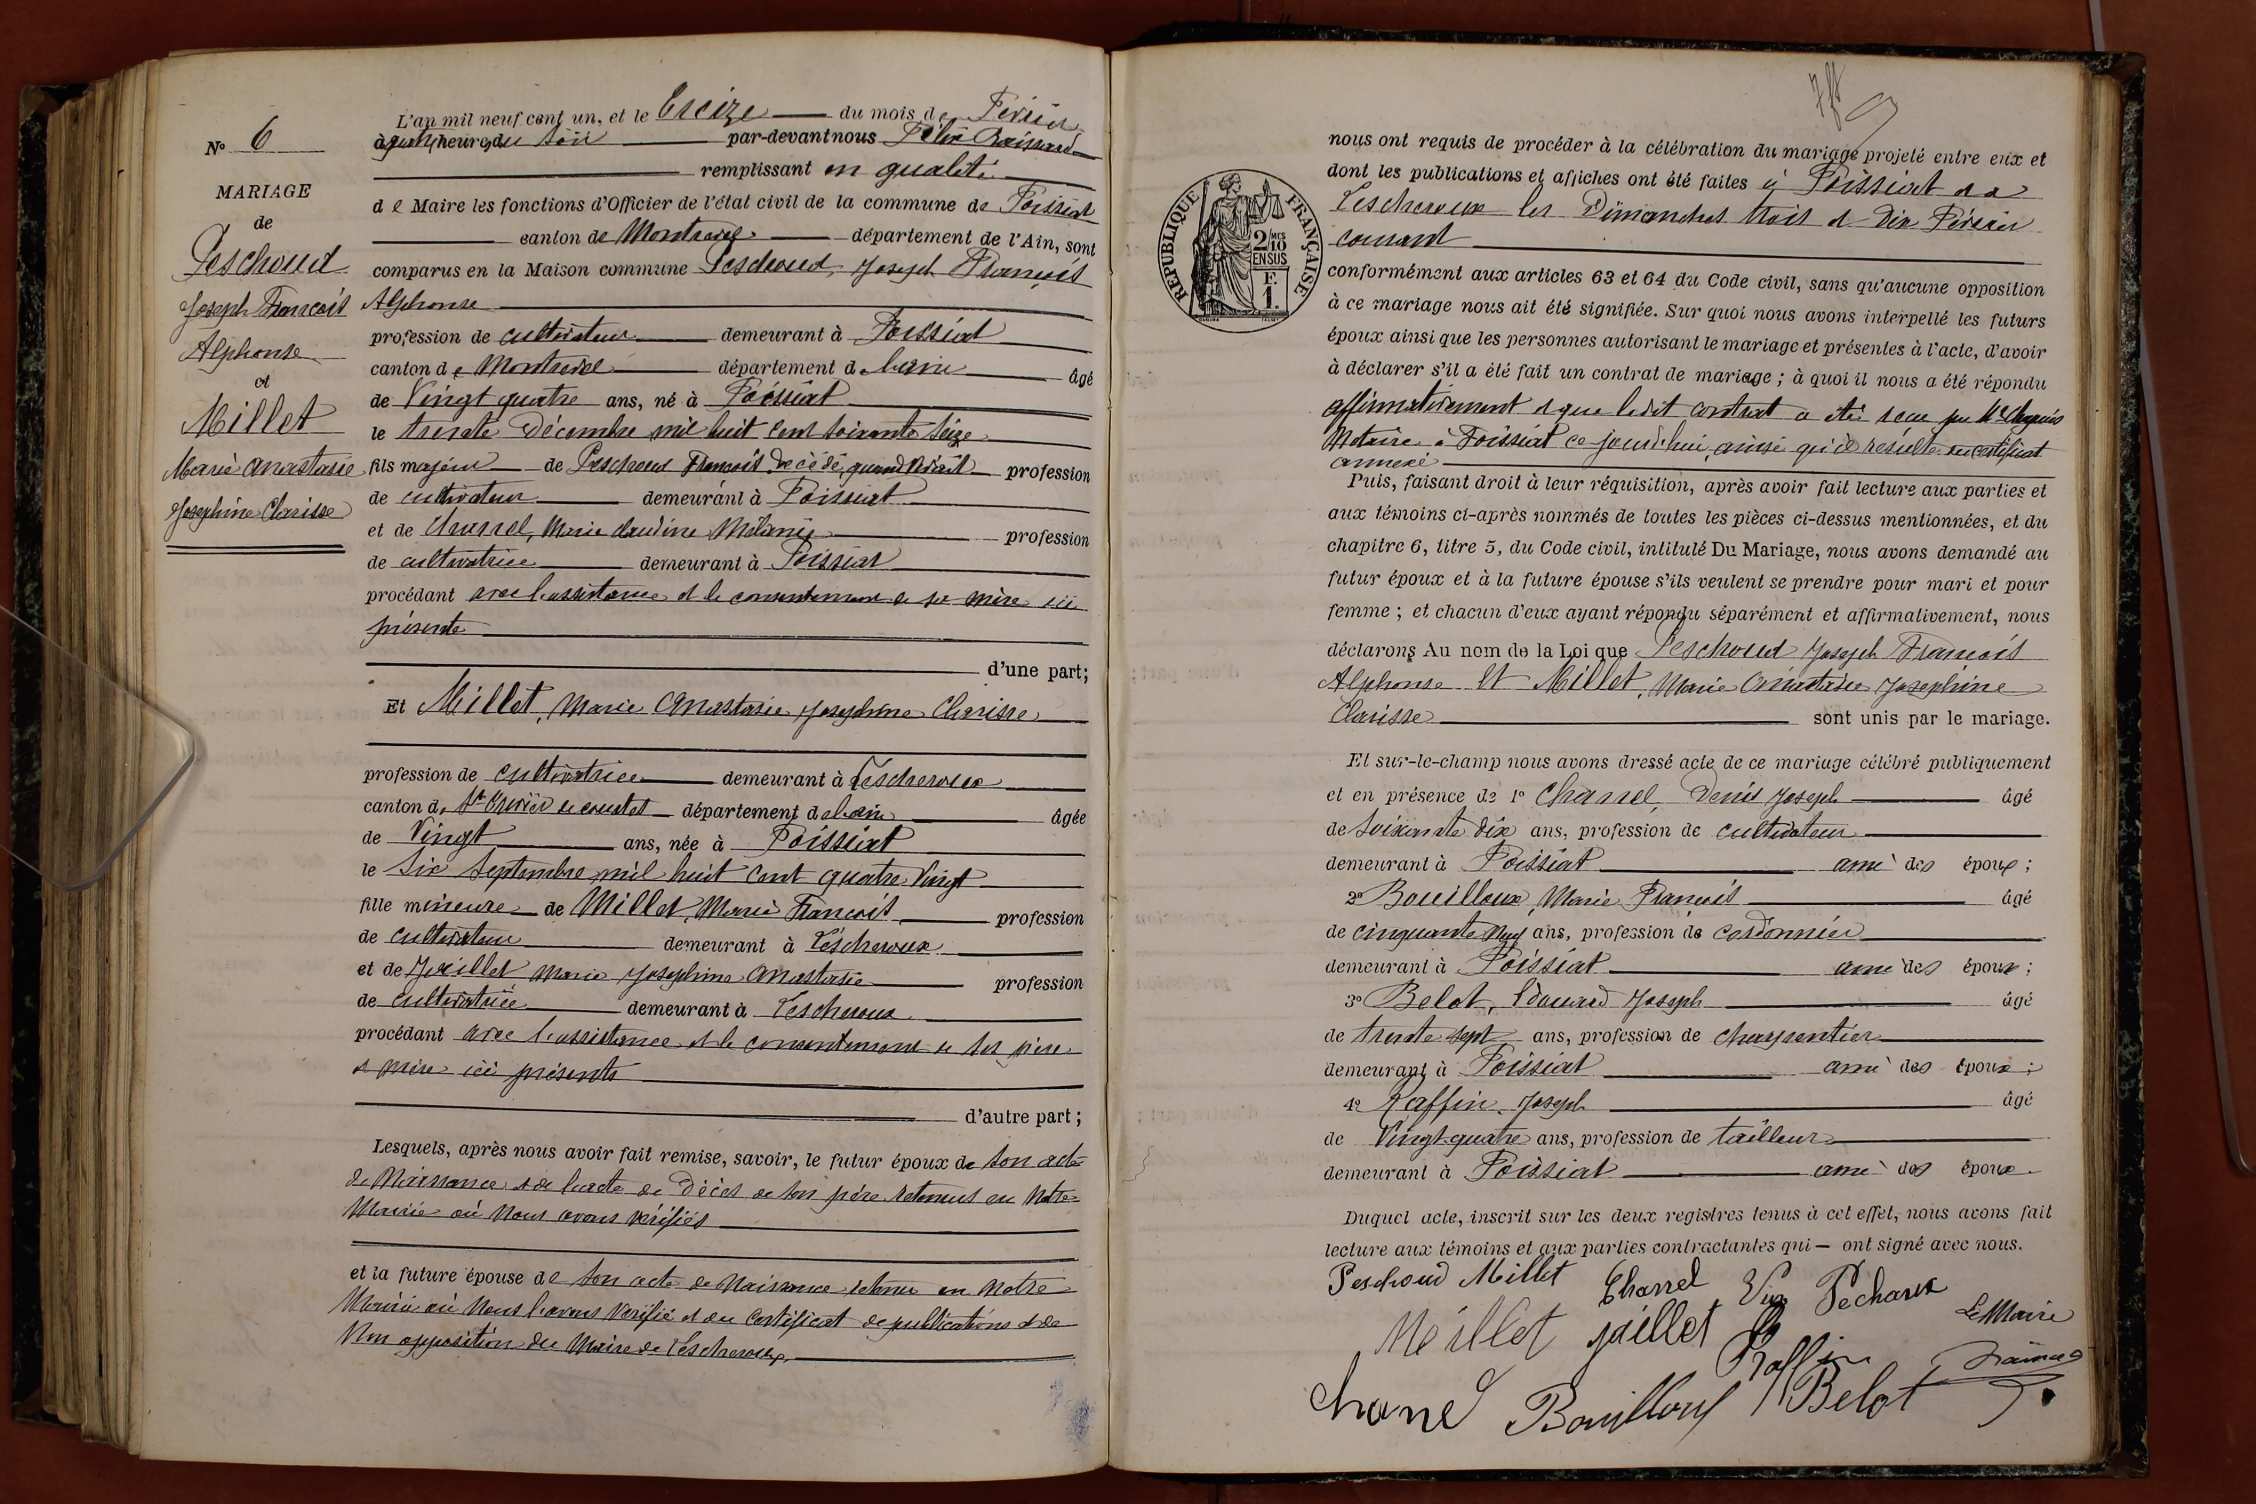 L'an mil neuf cent un, et le treize du mois de Février
à quatre heures du soir par-devant nous Félix
remplissant en qualité
de Maire les fonctions d'Officier de l'état civil de la commune de Foissiat
canton de Montrevel département de l'Ain, sont
comparus en la Maison commune Peschoud, Joseph François
Alphonse
profession de cultivateur demeurant à Foissiat
canton de Montrevel département de l'ain âgé
de Vingt quatre ans, né à Foissiat
le trente Décembre mil huit cent soixante seize
fils majeur de Peschoud François décédé, quand vivait profession
de cultivateur demeurant à Foissiat
et de Charnel, Marie Claudine Mélanie profession
de cultivatrice demeurant à Foissiat
procédant avec l'assistance et le consentement de sa mère ici
présente
d'une part;
Et Millet, Marie Anastasie Joséphine Clarisse
profession de cultivatrice demeurant à Lescheroux
canton de St Trivier de courtes département de l'ain âgée
de Vingt ans, née à Foissiat
le six Septembre mil huit cent quatre Vingt
fille mineure de Millet, Marie François profession
de cultivateur demeurant à Lescheroux
et de Jaillet Marie Josephine Anastasie profession
de cultivatrice demeurant à Lescheroux
procédant avec l'assistance et le consentement de ses père
et mère ici présents
d'autre part;
Lesquels, après nous avoir fait remise, savoir, le futur époux de son acte
de Naissance et de l'acte de Décès de son père retenus en Notre
Mairie où Nous avons vérifiés
et la future épouse de son acte de Naissance retenu en Notre
Mairie où Nous l'avons Vérifié et du certificat de publications et de
Non opposition du Maire de Lescheroux,
No 6
MARIAGE
de
Peschoud
Joseph François
Alphonse
et
Millet
Marie Anastasie
Josephine Clarisse
nous ont requis de procéder à la célébration du mariage projeté entre eux et
dont les publications et affiches ont été faites à Foissiat et à
Lescheroux les Dimanches trois et dix Février
courant
RÉPUBLIQUE FRANÇAISE
2/10
MES
EN SUS
F.
1.
conformément aux articles 63 et 64 du Code civil, sans qu'aucune opposition
à ce mariage nous ait été signifiée. Sur quoi nous avons interpellé les futurs
époux ainsi que les personnes autorisant le mariage et présentes à l'acte, d'avoir
à déclarer s'il a été fait un contrat de mariage; à quoi il nous a été répondu
affirmativement et que ledit contrat a été reçu par Me
Notaire à Foissiat ce jourd'hui, ainsi qu'il résulte du certificat
annexé
Puis, faisant droit à leur réquisition, après avoir fait lecture aux parties et
aux témoins ci-après nommés de toutes les pièces ci-dessus mentionnées, et du
chapitre 6, titre 5, du Code civil, intitulé Du Mariage, nous avons demandé au
futur époux et à la future épouse s'ils veulent se prendre pour mari et pour
femme; et chacun d'eux ayant répondu séparément et affirmativement, nous
déclarons Au nom de la Loi que Peschoud Joseph François
Alphonse Et Millet, Marie Anastasie Josephine
Clarisse sont unis par le mariage.
Et sur-le-champ nous avons dressé acte de ce mariage célébré publiquement
et en présence de 1o Charnel, Denis Joseph âgé
de soixante dix ans, profession de cultivateur
demeurant à Foissiat ami des époux;
2o Bouilloux, Marie François âgé
de cinquante Neuf ans, profession de cordonnier
demeurant à Foissiat ami des époux;
3o Belot, Edouard Joseph âgé
de trente sept ans, profession de charpentier
demeurant à Foissiat ami des époux;
4o Raffin, Joseph âgé
de Vingt-quatre ans, profession de tailleur
demeurant à Foissiat ami des époux.
Duquel acte, inscrit sur les deux registres tenus à cet effet, nous avons fait
lecture aux témoins et aux parties contractantes qui — ont signé avec nous.
Peschoud Millet Charnel Péchoux
Le Maire
Méillet jaillet Raffin
Bouilloux Belot